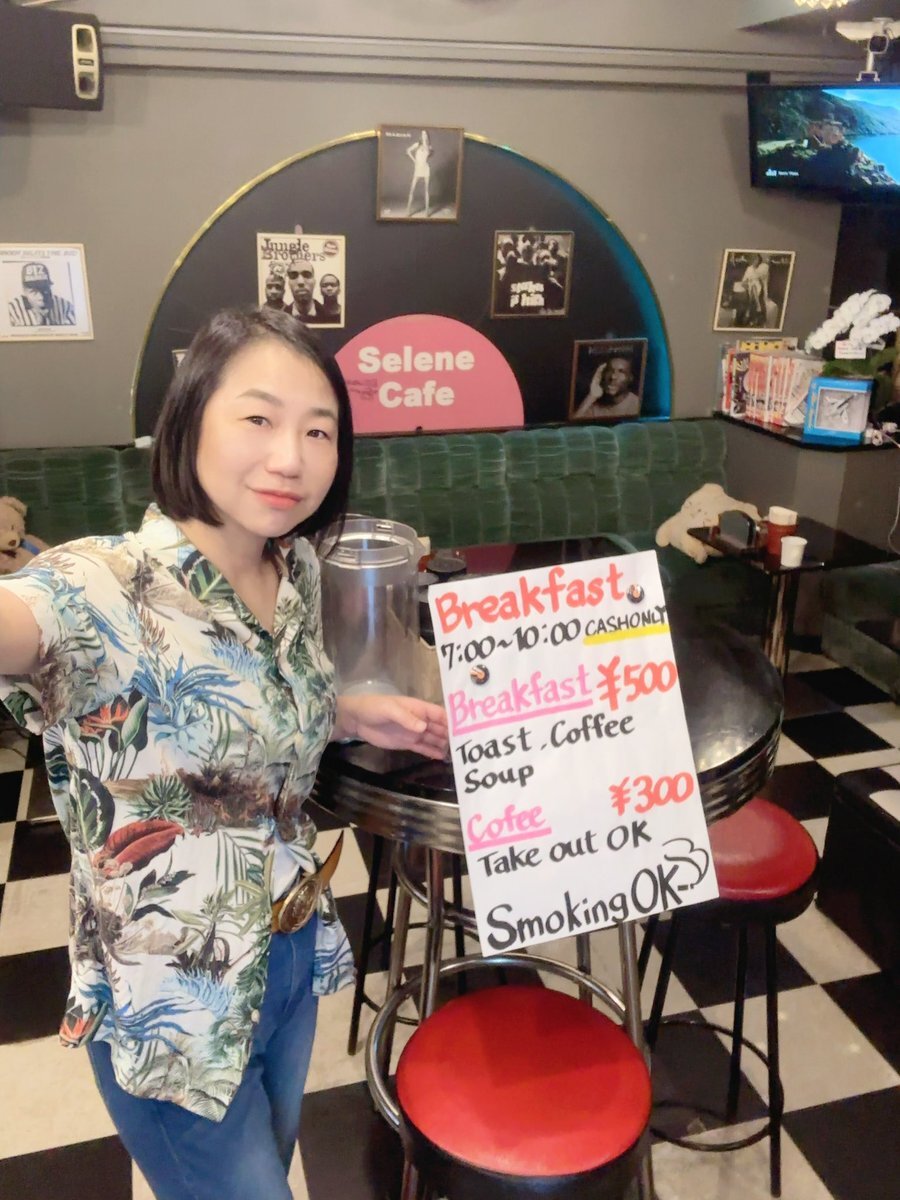 Jungle
Brothers
BIZ
Selene
Cafe
Breakfast
7:00~10:00 CASHONLY
Breakfast ¥500
Toast. Coffee
Soup
Cofee ¥300
Take out OK
Smoking OK